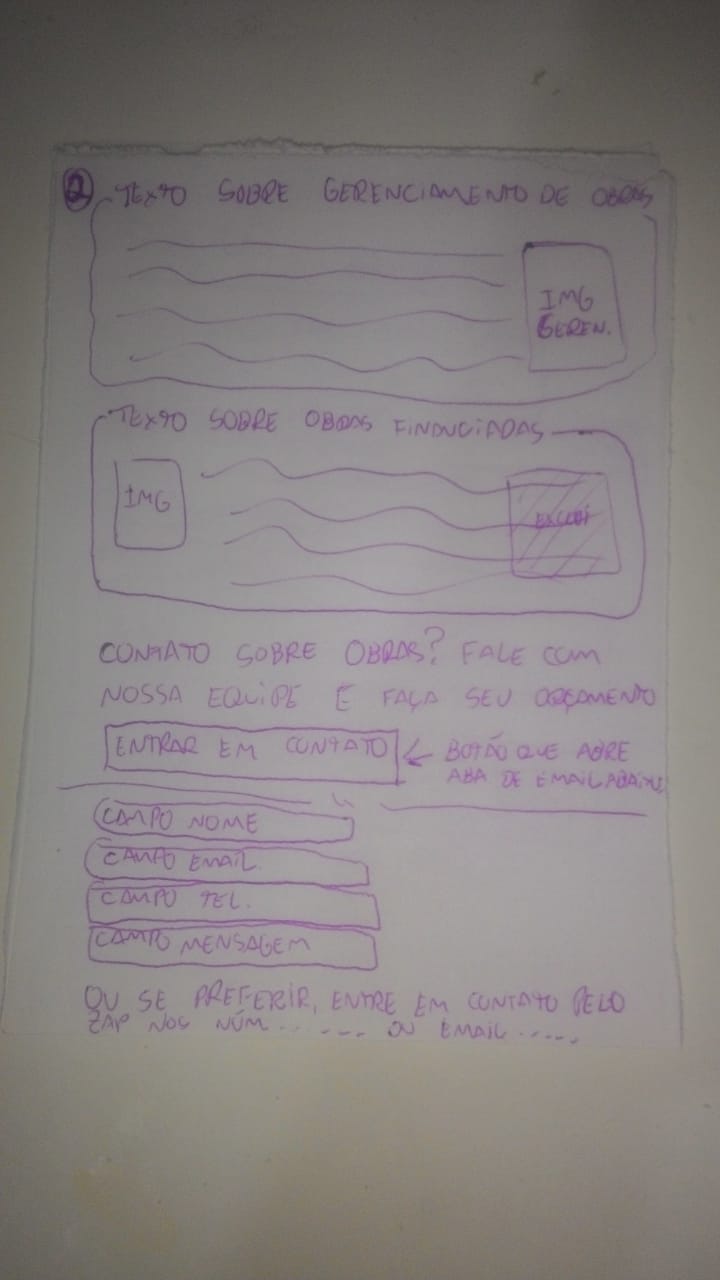 2 TEXTO SOBRE GERENCIAMENTO DE OBRAS
IMG
GEREN.
TEXTO SOBRE OBRAS FINANCIADAS
IMG
CONTATO SOBRE OBRAS? FALE COM
NOSSA EQUIPE E FAÇA SEU ORÇAMENTO
ENTRAR EM CONTATO
BOTÃO QUE ABRE
ABA DE EMAIL ABAIXO
CAMPO NOME
CAMPO EMAIL
CAMPO TEL.
CAMPO MENSAGEM
OU SE PREFERIR, ENTRE EM CONTATO PELO
ZAP NOS NÚM....... OU EMAIL.....